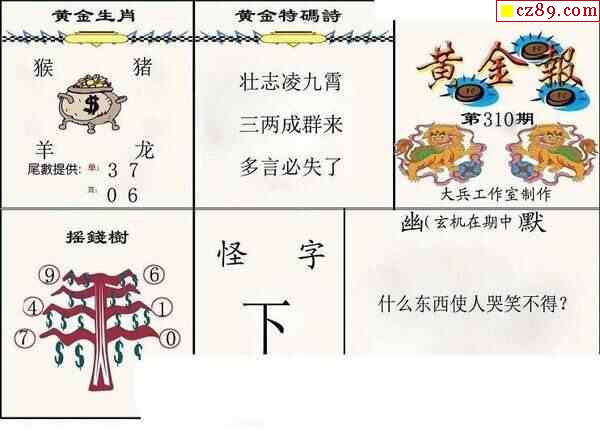 cz89.com
黄金生肖
猴 猪
羊 龙
尾數提供: 单: 3 7
0 6
黄金特碼詩
壮志凌九霄
三两成群来
多言必失了
黄金報
第310期
大兵工作室制作
摇錢樹
9 6
4 1
7 0
怪 字
下
幽(玄机在期中)默
什么东西使人哭笑不得?